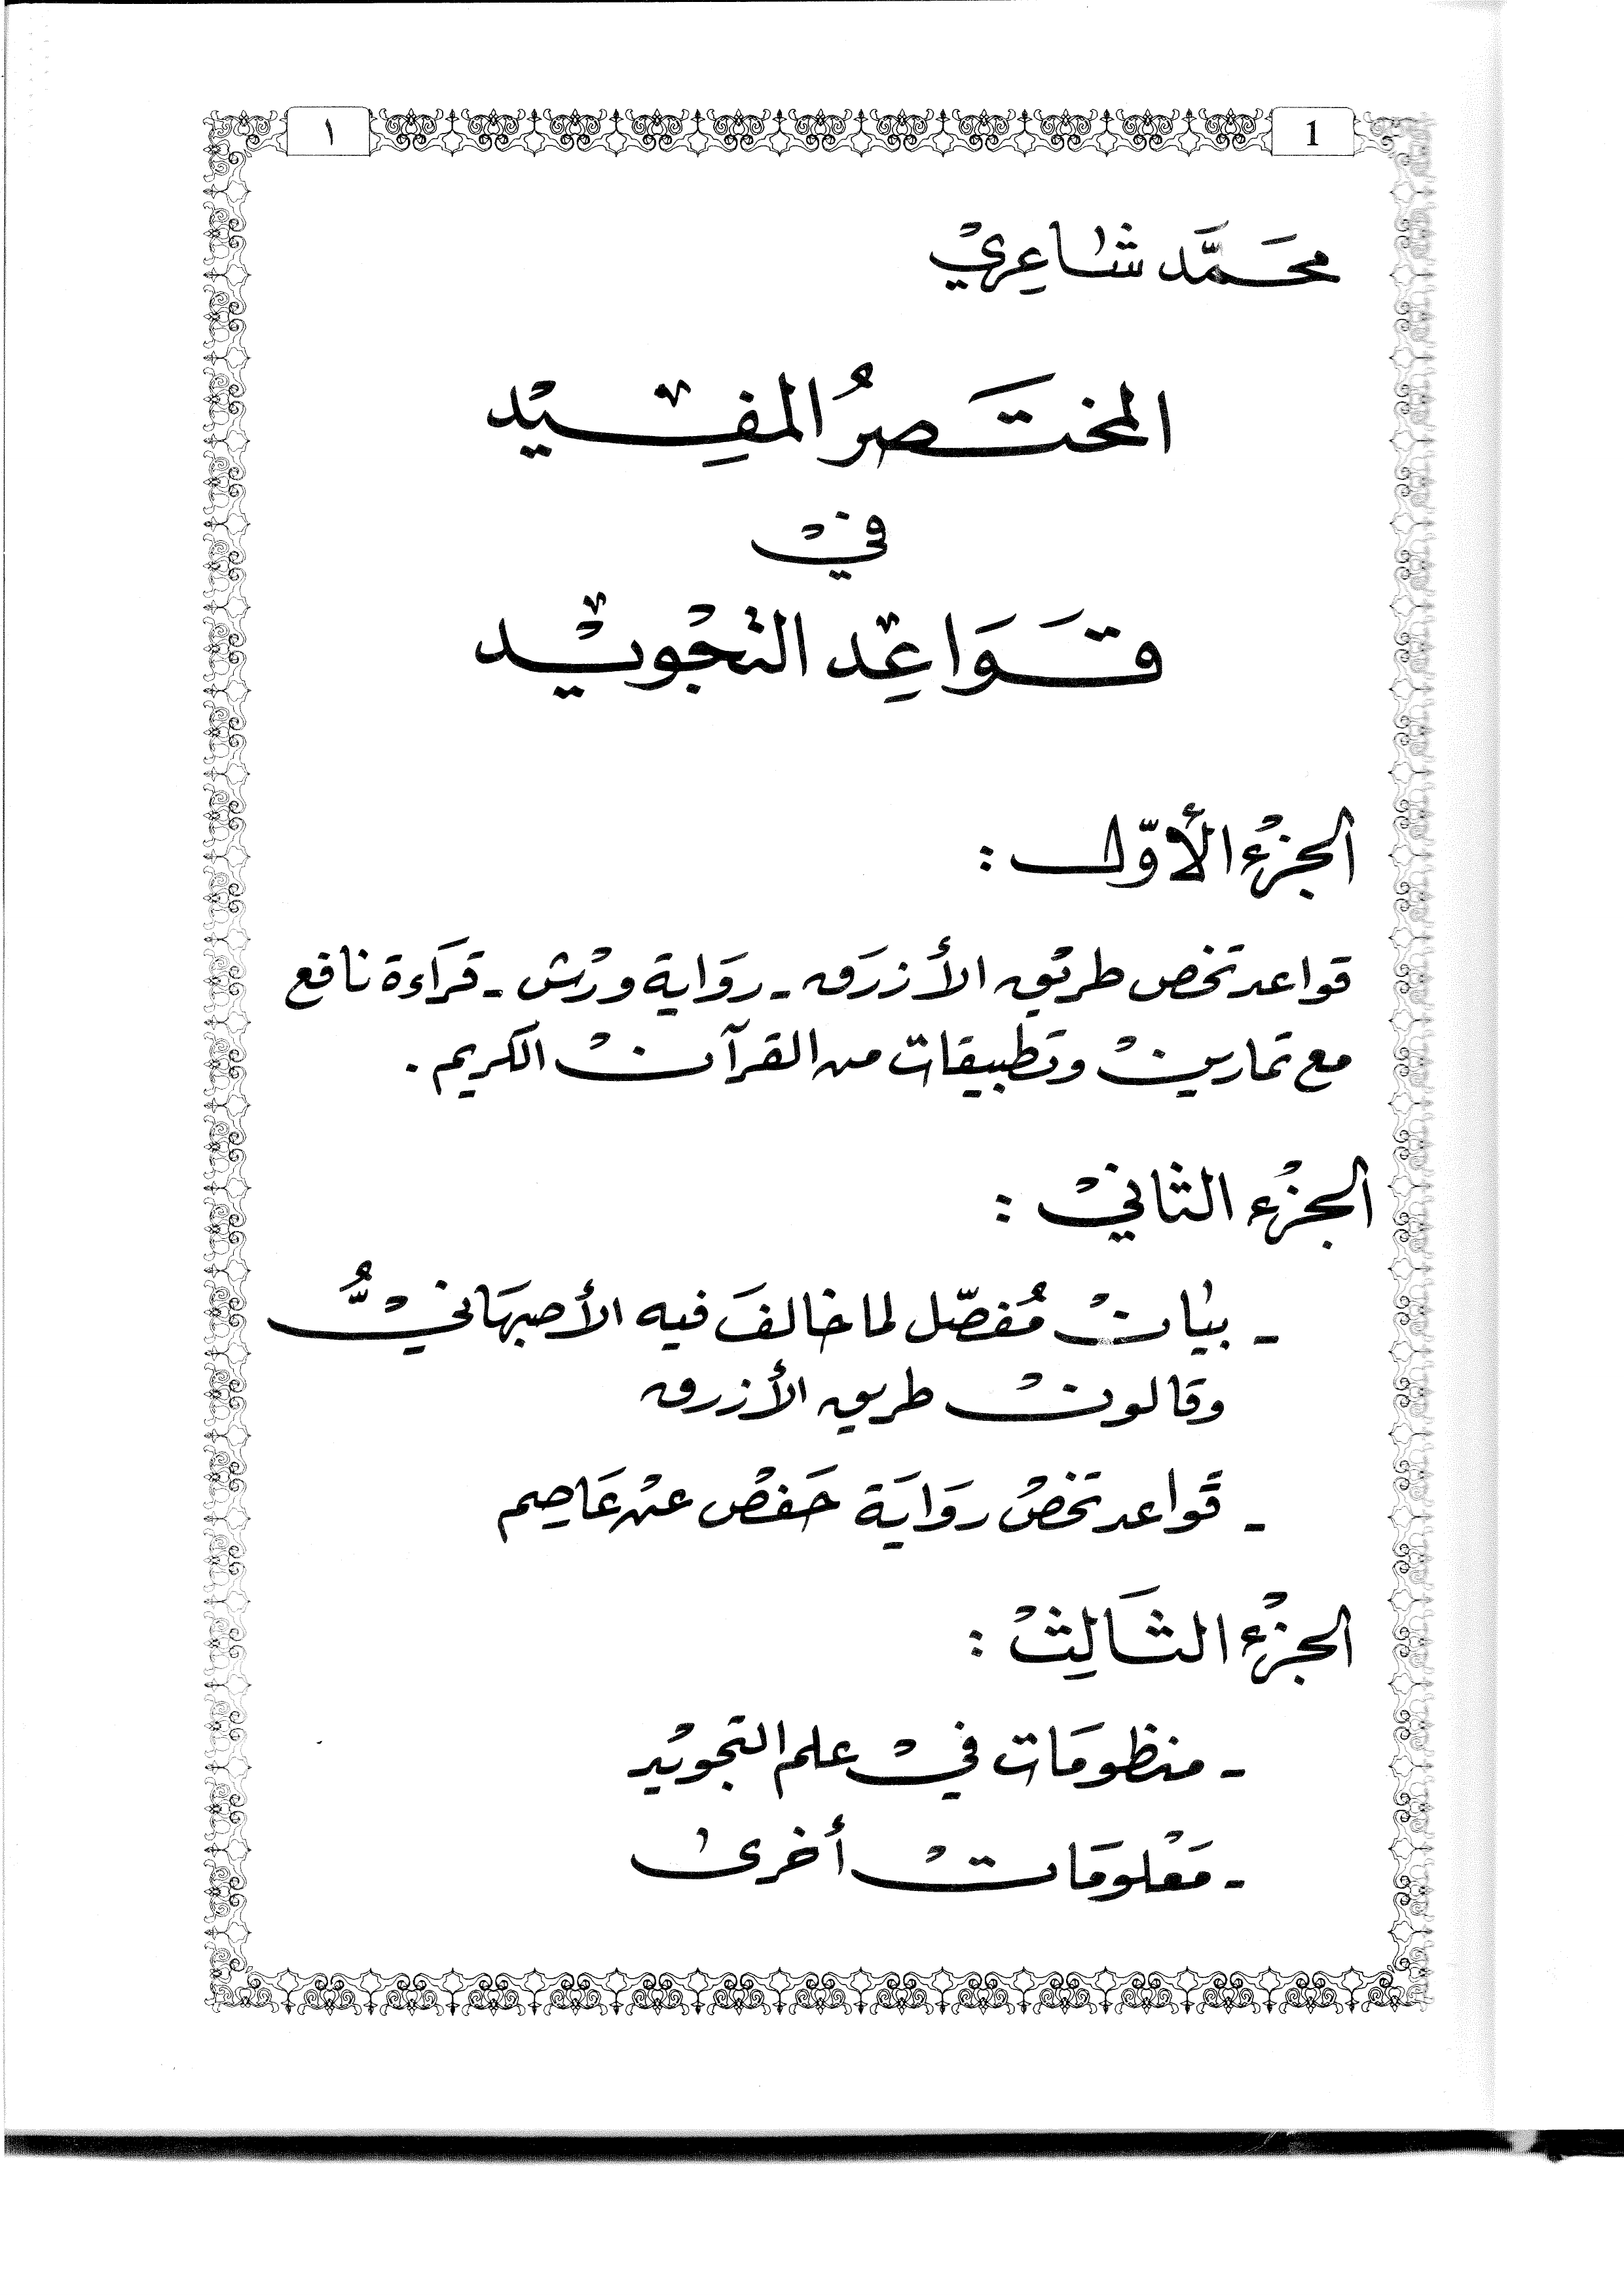 1
١
محَمَّد شاعِريْ
المختَصرُ المفِيْد
فيْ
قَوَاعِد التجْويْد
الجزْء الأوّل :
قواعد تخص طريْق الأزرَق - روَاية ورْش - قرَاءة نافع
مع تمارينْ وتطبيقات من القرآنْ الكريم .
الجزْء الثانيْ :
- بيانْ مُفصّل لما خالفَ فيه الأصبهَانيْ
وقالونْ طريق الأزرق
- قَواعد تخصْ روَايَة حَفصْ عنْ عَاصِم
الجزْء الثَالِثْ :
- منظومَات فيْ علم التجويْد
- مَعْلومَاتْ أخرى